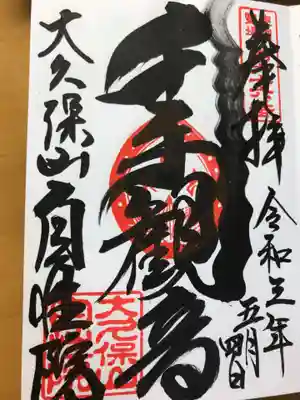 奉拝
令和年
五月四日
千手觀音
大久保山自性院
大久保山